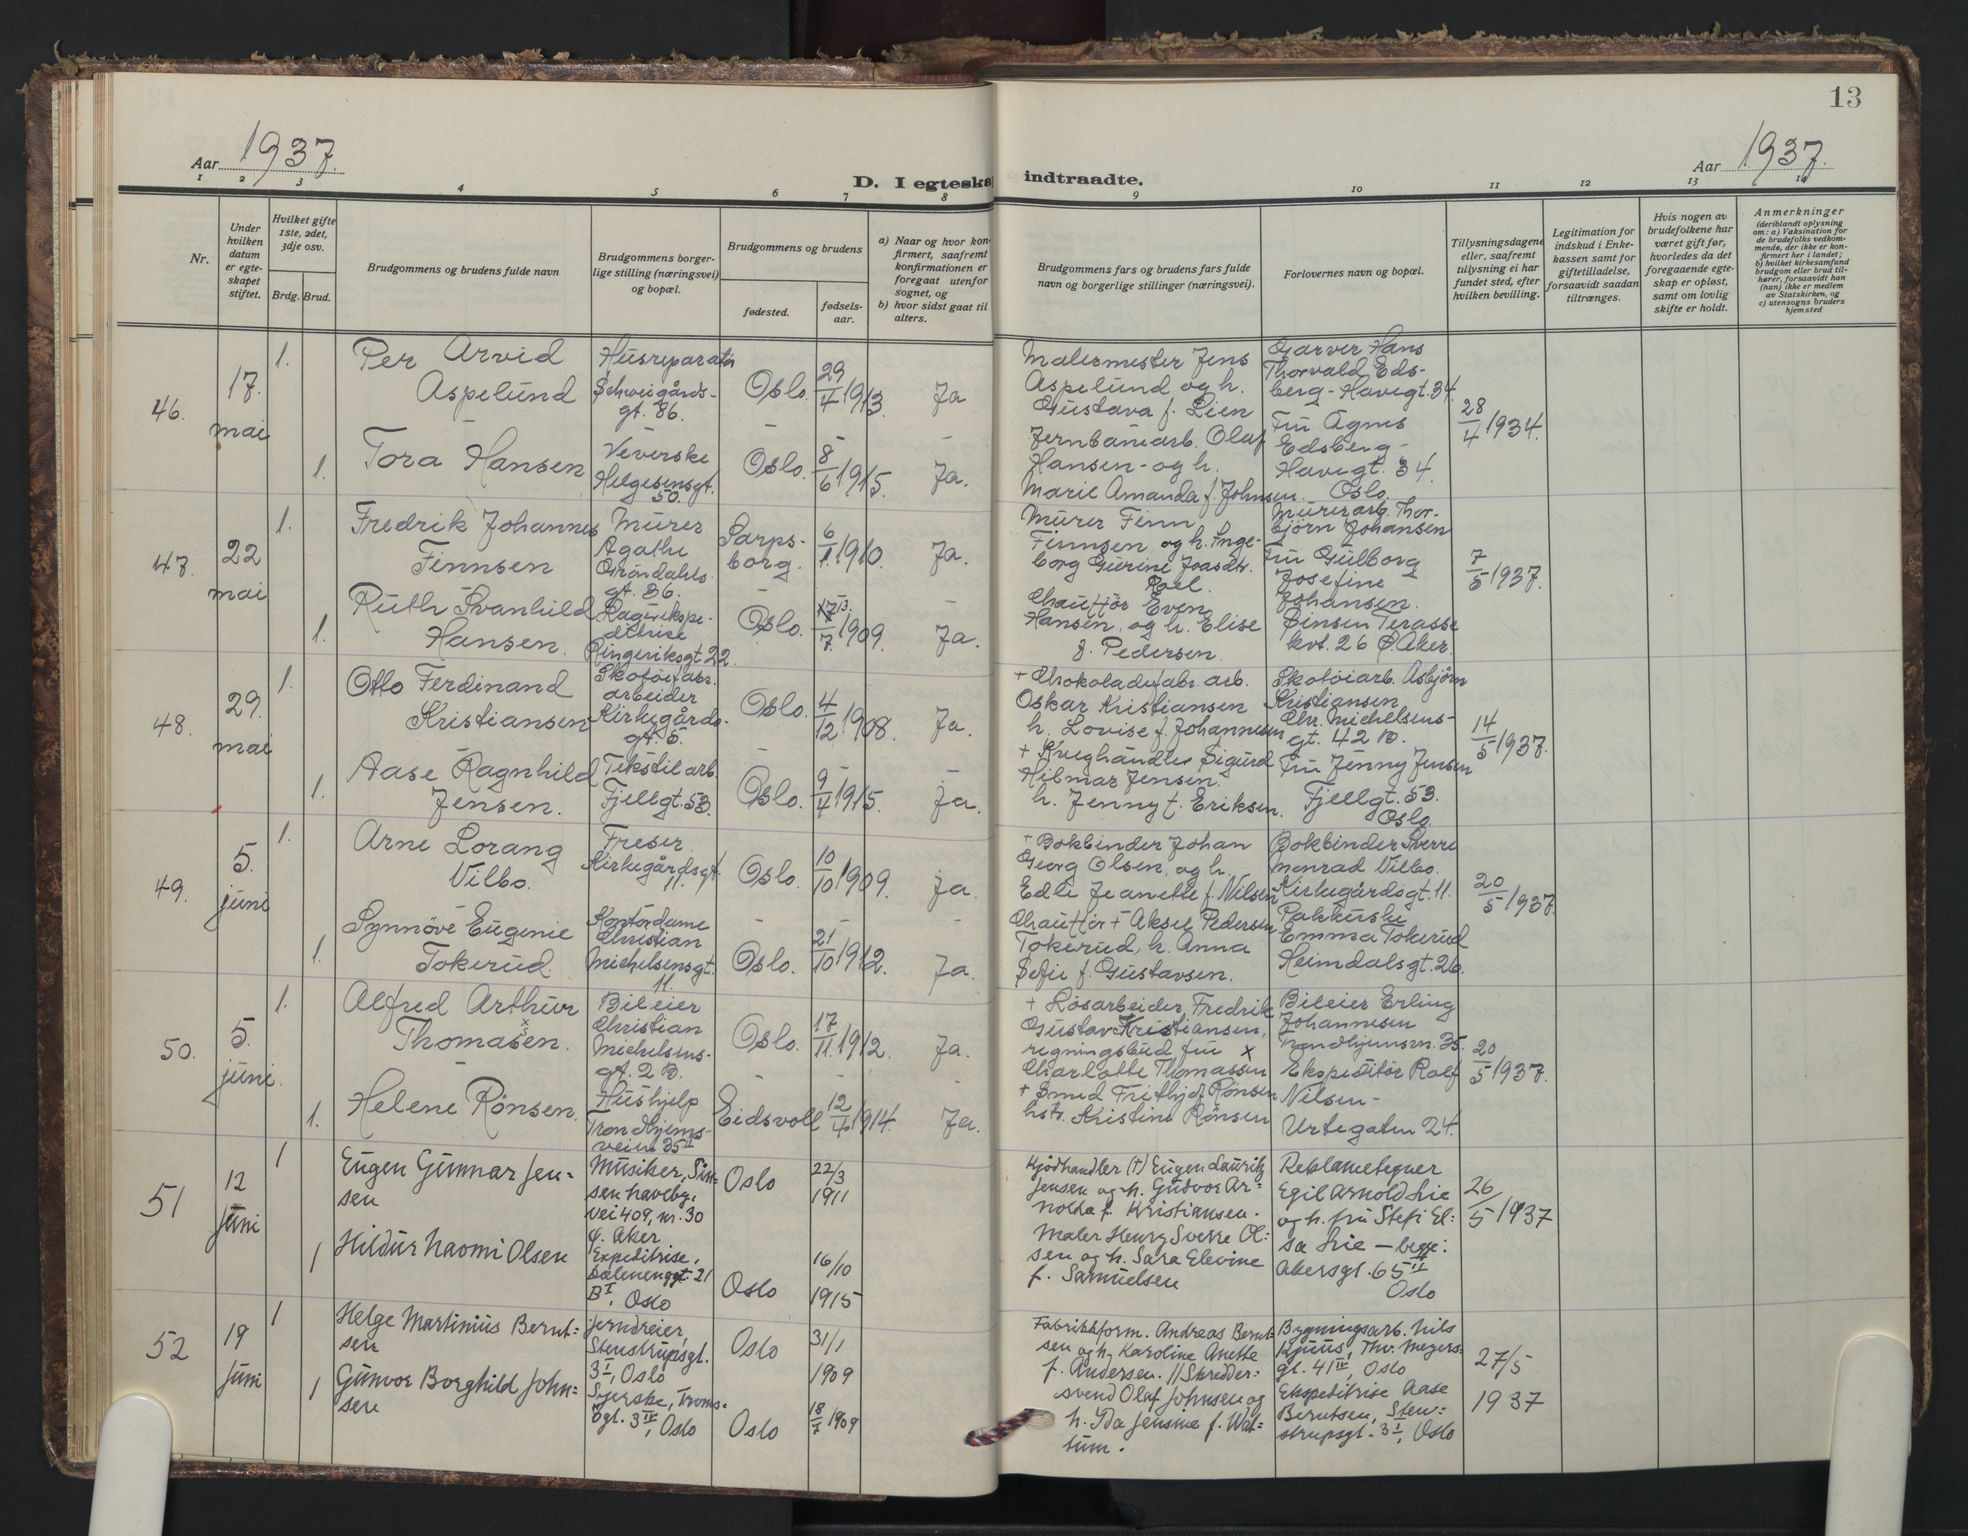 13
Aar 1937.
D. I egteska
indtraadte.
Aar 1937.
1 2 3 4 5 6 7 8 9 10 11 12 13 14
Nr.
Under
hvilken
datum
er egte-
skapet
stiftet.
Hvilket gifte
1ste, 2det,
3dje osv.
Brdg. Brud.
Brudgommens og brudens fulde navn
Brudgommens borger-
lige stilling (næringsvei)
og bopæl.
Brudgommens og brudens
fødested.
fødsels-
aar.
a) Naar og hvor kon-
firmert, saafremt
konfirmationen er
foregaat utenfor
sognet, og
b) hvor sidst gaat til
alters.
Brudgommens fars og brudens fars fulde
navn og borgerlige stillinger (næringsvei).
Forlovernes navn og bopæl.
Tillysningsdagene
eller, saafremt
tillysning ei har
fundet sted, efter
hvilken bevilling.
Legitimation for
indskud i Enke-
kassen samt for
giftetilladelse,
forsaavidt saadan
tiltrænges.
Hvis nogen av
brudefolkene har
været gift før,
hvorledes da det
foregaaende egte-
skap er opløst,
samt om lovlig
skifte er holdt.
Anmerkninger
(deriblandt oplysning
om: a) Vaksination for
de brudefolks vedkom-
mende, der ikke er kon-
firmert her i landet;
b) hvilket kirkesamfund
brudgom eller brud til-
hører, forsaavidt han
(hun) ikke er medlem
av Statskirken, og
c) utensogns bruders
hjemsted
46.
17.
mai
1.
Per Arvid
Aspelund
Husreparatør
Schweigårds-
gt. 86.
Oslo.
29/4 1913.
Ja
Malermester Jens
Aspelund og h.
Gustava f. Lien
Garver Hans
Thorvald Eds-
berg - Havegt. 34.
28/4 1934.
1.
Tora Hansen
Veverske
Helgesensgt.
50.
Oslo.
8/6 1915.
Ja.
Jernbanearb. Olaf
Hansen - og h.
Marie Amanda f. Johnsen.
Fru Agnes
Edsberg -
Havegt. 34.
Oslo.
47.
22
mai
1.
Fredrik Johannes
Finnsen
Murer
Agathe
Gröndahls-
gt. 36.
Sarps-
borg.
6/1. 1910.
Ja.
Murer Finn
Finnsen og h. Inge-
borg Gurine Joasdtr.
Roel.
Murerarb. Thor-
björn Johansen
Fru Gulborg
Josefine
Johansen.
7/5 1937.
1.
Ruth Svanhild
Hansen.
Lagerekspe-
ditrise
Ringeriksgt 22.
Oslo.
13/7. 1909.
Ja.
Chauffør Even
Hansen, og h. Elise
f. Pedersen.
Sinsen Terasse
kvt. 26 Ø. Aker.
48.
29.
mai
1.
Otto Ferdinand
Kristiansen
Skotöifabr.
arbeider
Kirkegårds-
gt. 5.
Oslo.
4/12 1908.
Ja.
+ Chokoladefabr. arb.
Oskar Kristiansen
h. Lovise f. Johannesen
Skotöiarb. Asbjörn
Kristiansen
Chr. Michelsens-
gt. 42 B.
14/5 1937.
1.
Aase Ragnhild
Jensen.
Tekstilarb.
Fjellgt. 53.
Oslo.
9/4 1915.
Ja.
Hilmar Jensen
h. Jenny f. Eriksen.
Fru Jenny Jensen
Fjellgt. 53.
Oslo.
49.
5.
juni
1.
Arne Lorang
Vilbo.
Freser
Kirkegårdsgt.
11.
Oslo.
10/10 1909.
Ja.
+ Bokbinder Johan
Georg Olsen, og h.
Edle Jeanette f. Nilsen
Bokbinder Sverre
Monrad Vilbo.
Kirkegårdsgt. 11.
20/5 1937.
1.
Synnöve Eugenie
Tokerud.
Kontordame
Christian
Michelsensgt.
11.
Oslo.
21/10 1912.
Ja.
Chauffør + Aksel Pedersen
Tokerud, h. Anna
Sofie f. Gustavsen.
Pakkerske
Emma Tokerud
Heimdalsgt. 26.
50.
5.
juni.
1.
Alfred Arthur
Thomasen.
Bileier
Christian
Michelsens-
gt. 2 B.
Oslo.
17/11. 1912.
Ja.
+ Lösarbeider, Fredrik
Gustav Kristiansen,
regningsbud fru x
Charlotte Thomassen
Bileier Erling
Johannesen
Trondhjemsvn. 35.
20/5 1937.
1.
Helene Rönsen.
Hushjelp
Trondhjems-
veien 35 II
Eidsvoll
12/7 1914.
Ja.
+ Smed Frithjof Rönsen
hstr. Kristine Rönsen
Ekspeditör Rolf
Nilsen -
Urtegaten 24.
51
12
Juni
1
Eugen Gunnar Jen-
sen
Musiker, Sin-
sen haveby,
vei 409, nr. 30
Ø. Aker
Oslo
22/3
1911
Kjødhandler (+) Eugen Lauritz
Jensen og h. Gudvor Ar=
nolda f. Kristiansen.
Reklametegner
Egil Arnold Lie
og h. fru Stefi El=
sa Lie - begge:
Akersgt. 65 II
Oslo
26/5 1937
1
Hildur Naomi Olsen
Expeditrise,
Dælenenggt. 21
B I, Oslo
Oslo
16/10
1915
Maler Henry Sverre Ol=
sen og h. Sara Elevine
f. Samuelsen
52
19
Juni
1
Helge Martinius Bernt=
sen
Jerndreier,
Stenstrupsgt.
3 I, Oslo
Oslo
31/1
1909
Fabrikkform. Andreas Bernt-
sen og h. Karoline Anette
f. Andersen. // Skredder=
svend Olaf Johnsen og
h. Ida Jensine f. Wat=
tum.
Bygningsarb. Nils
Kjuus, Thv. Meyers-
gt. 41 IV, Oslo
Ekspeditrise Aase
Berntsen, Sten=
strupsgt. 3 I, Oslo
27/5
1937
1
Gunvor Borghild John=
sen
Syerske, Troms-
øgt. 3 IV, Oslo
Oslo
18/7 1909